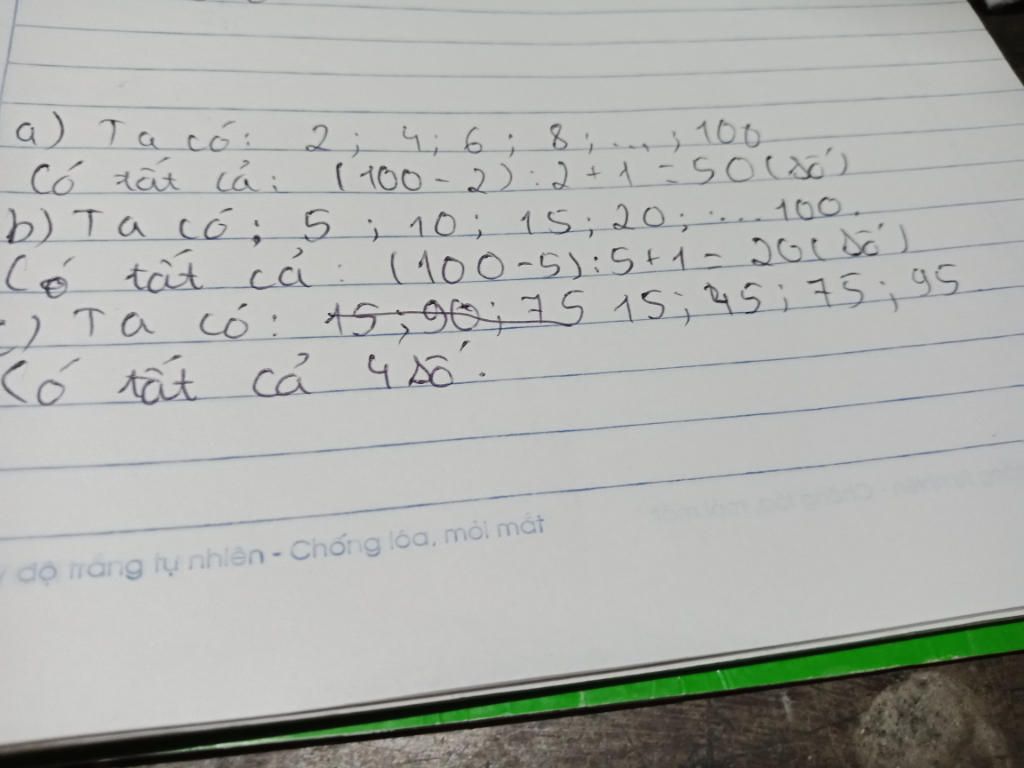 a) Ta có: 2; 4; 6; 8; ...; 100
Có tất cả: (100 - 2) : 2 + 1 = 50 (số)
b) Ta có: 5; 10; 15; 20; ... 100.
Có tất cả: (100 - 5) : 5 + 1 = 20 (số)
c) Ta có: 15; 90; 75 15; 45; 75; 95
Có tất cả 4 số.
độ trắng tự nhiên - Chống lóa, mỏi mắt